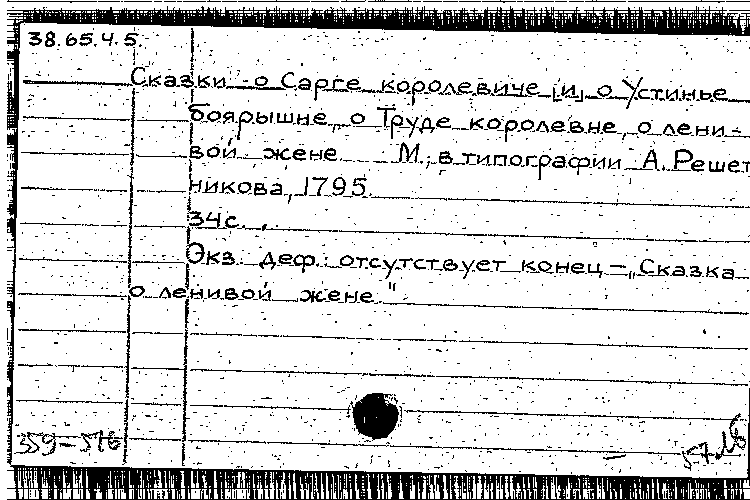 38.65.4.5.
Сказки о Сарге королевиче [и] о Устинье
боярышне, о Труде королевне, о лени-
вой жене М., в типографии А. Решет
никова, 1795.
34с.
Экз. деф.: отсутствует конец - „Сказка
о ленивой жене"